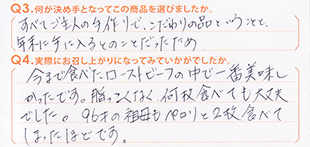 Q3.何が決め手となってこの商品を選びましたか。
すべてご主人の手作りで、こだわりの品ということと、
年末に手に入るとのことだったため
Q4.実際にお召し上がりになってみていかがでしたか。
今まで食べたローストビーフの中で一番美味し
かったです。脂っこくなく何枚食べても大丈夫
でした。96才の祖母もペロリと2枚食べて
しまったほどです。